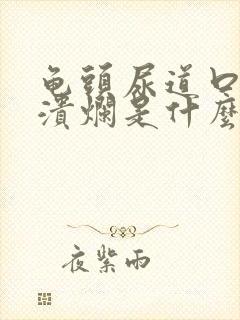 龟頭尿道口
潰爛是什麼
夜紫雨